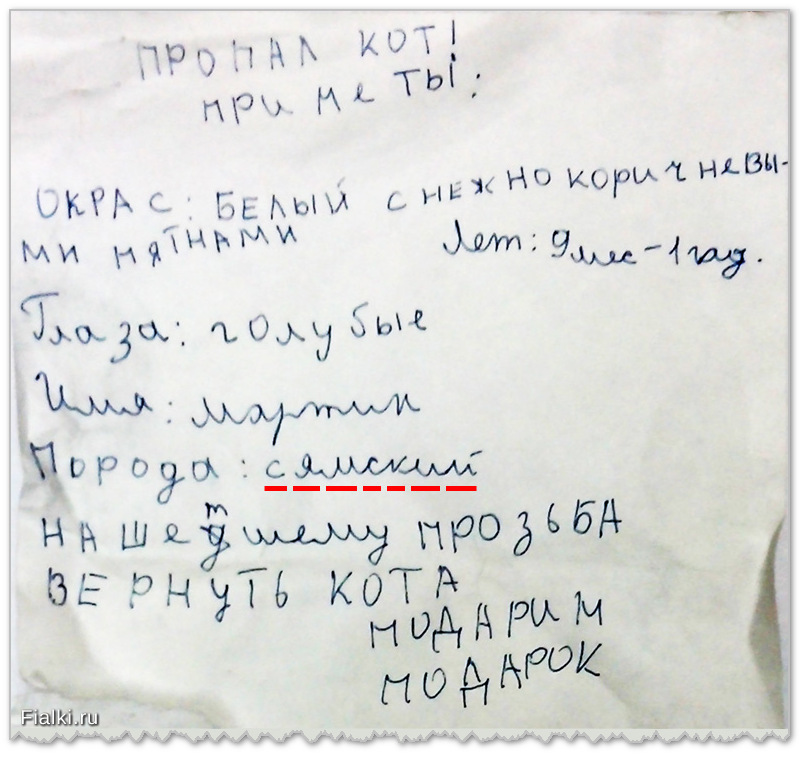 ПРОПАЛ КОТ!
ПРИМеТЫ:
ОКРАС: БЕЛЫЙ С НЕЖНО КОРИЧНеВЫ-
МИ ПЯТНАМИ Лет: 9 мес - 1 год.
Глаза: голубые
Имя: мартин
Порода: сямский
НАШетшему ПРОЗЬБА
ВЕРНУТЬ КОТА
ПОДАРИМ
ПОДАРОК
Fialki.ru